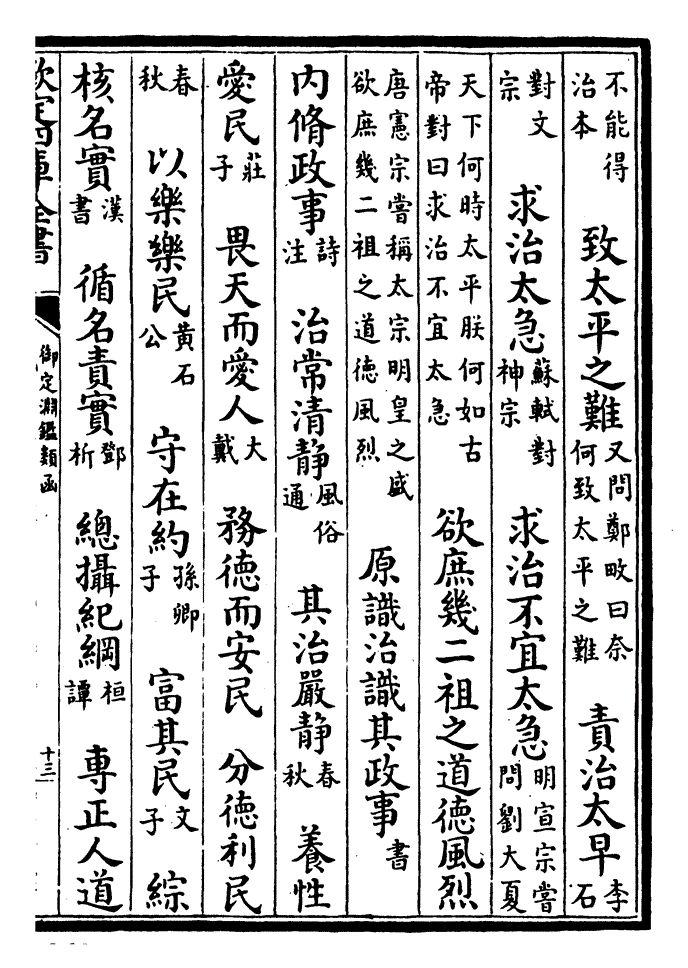 不能得治本　致太平之難又問鄭畋曰奈何致太平之難　責治太早李石
對文宗　求治太急蘇軾對神宗　求治不宜太急明宣宗嘗問劉大夏
天下何時太平朕何如古帝對曰求治不宜太急　欲庶幾二祖之道德風烈
唐憲宗嘗稱太宗明皇之盛欲庶幾二祖之道德風烈　原識治識其政事書
内脩政事詩注　治常清静風俗通　其治嚴静春秋　養性
愛民莊子　畏天而愛人大戴　務德而安民　分德利民
春秋　以樂樂民黄石公　守在約孫卿子　富其民文子　綜
核名實漢書　循名責實鄧析　總攝紀綱桓譚　專正人道
欽定四庫全書　御定淵鑑類函　十三